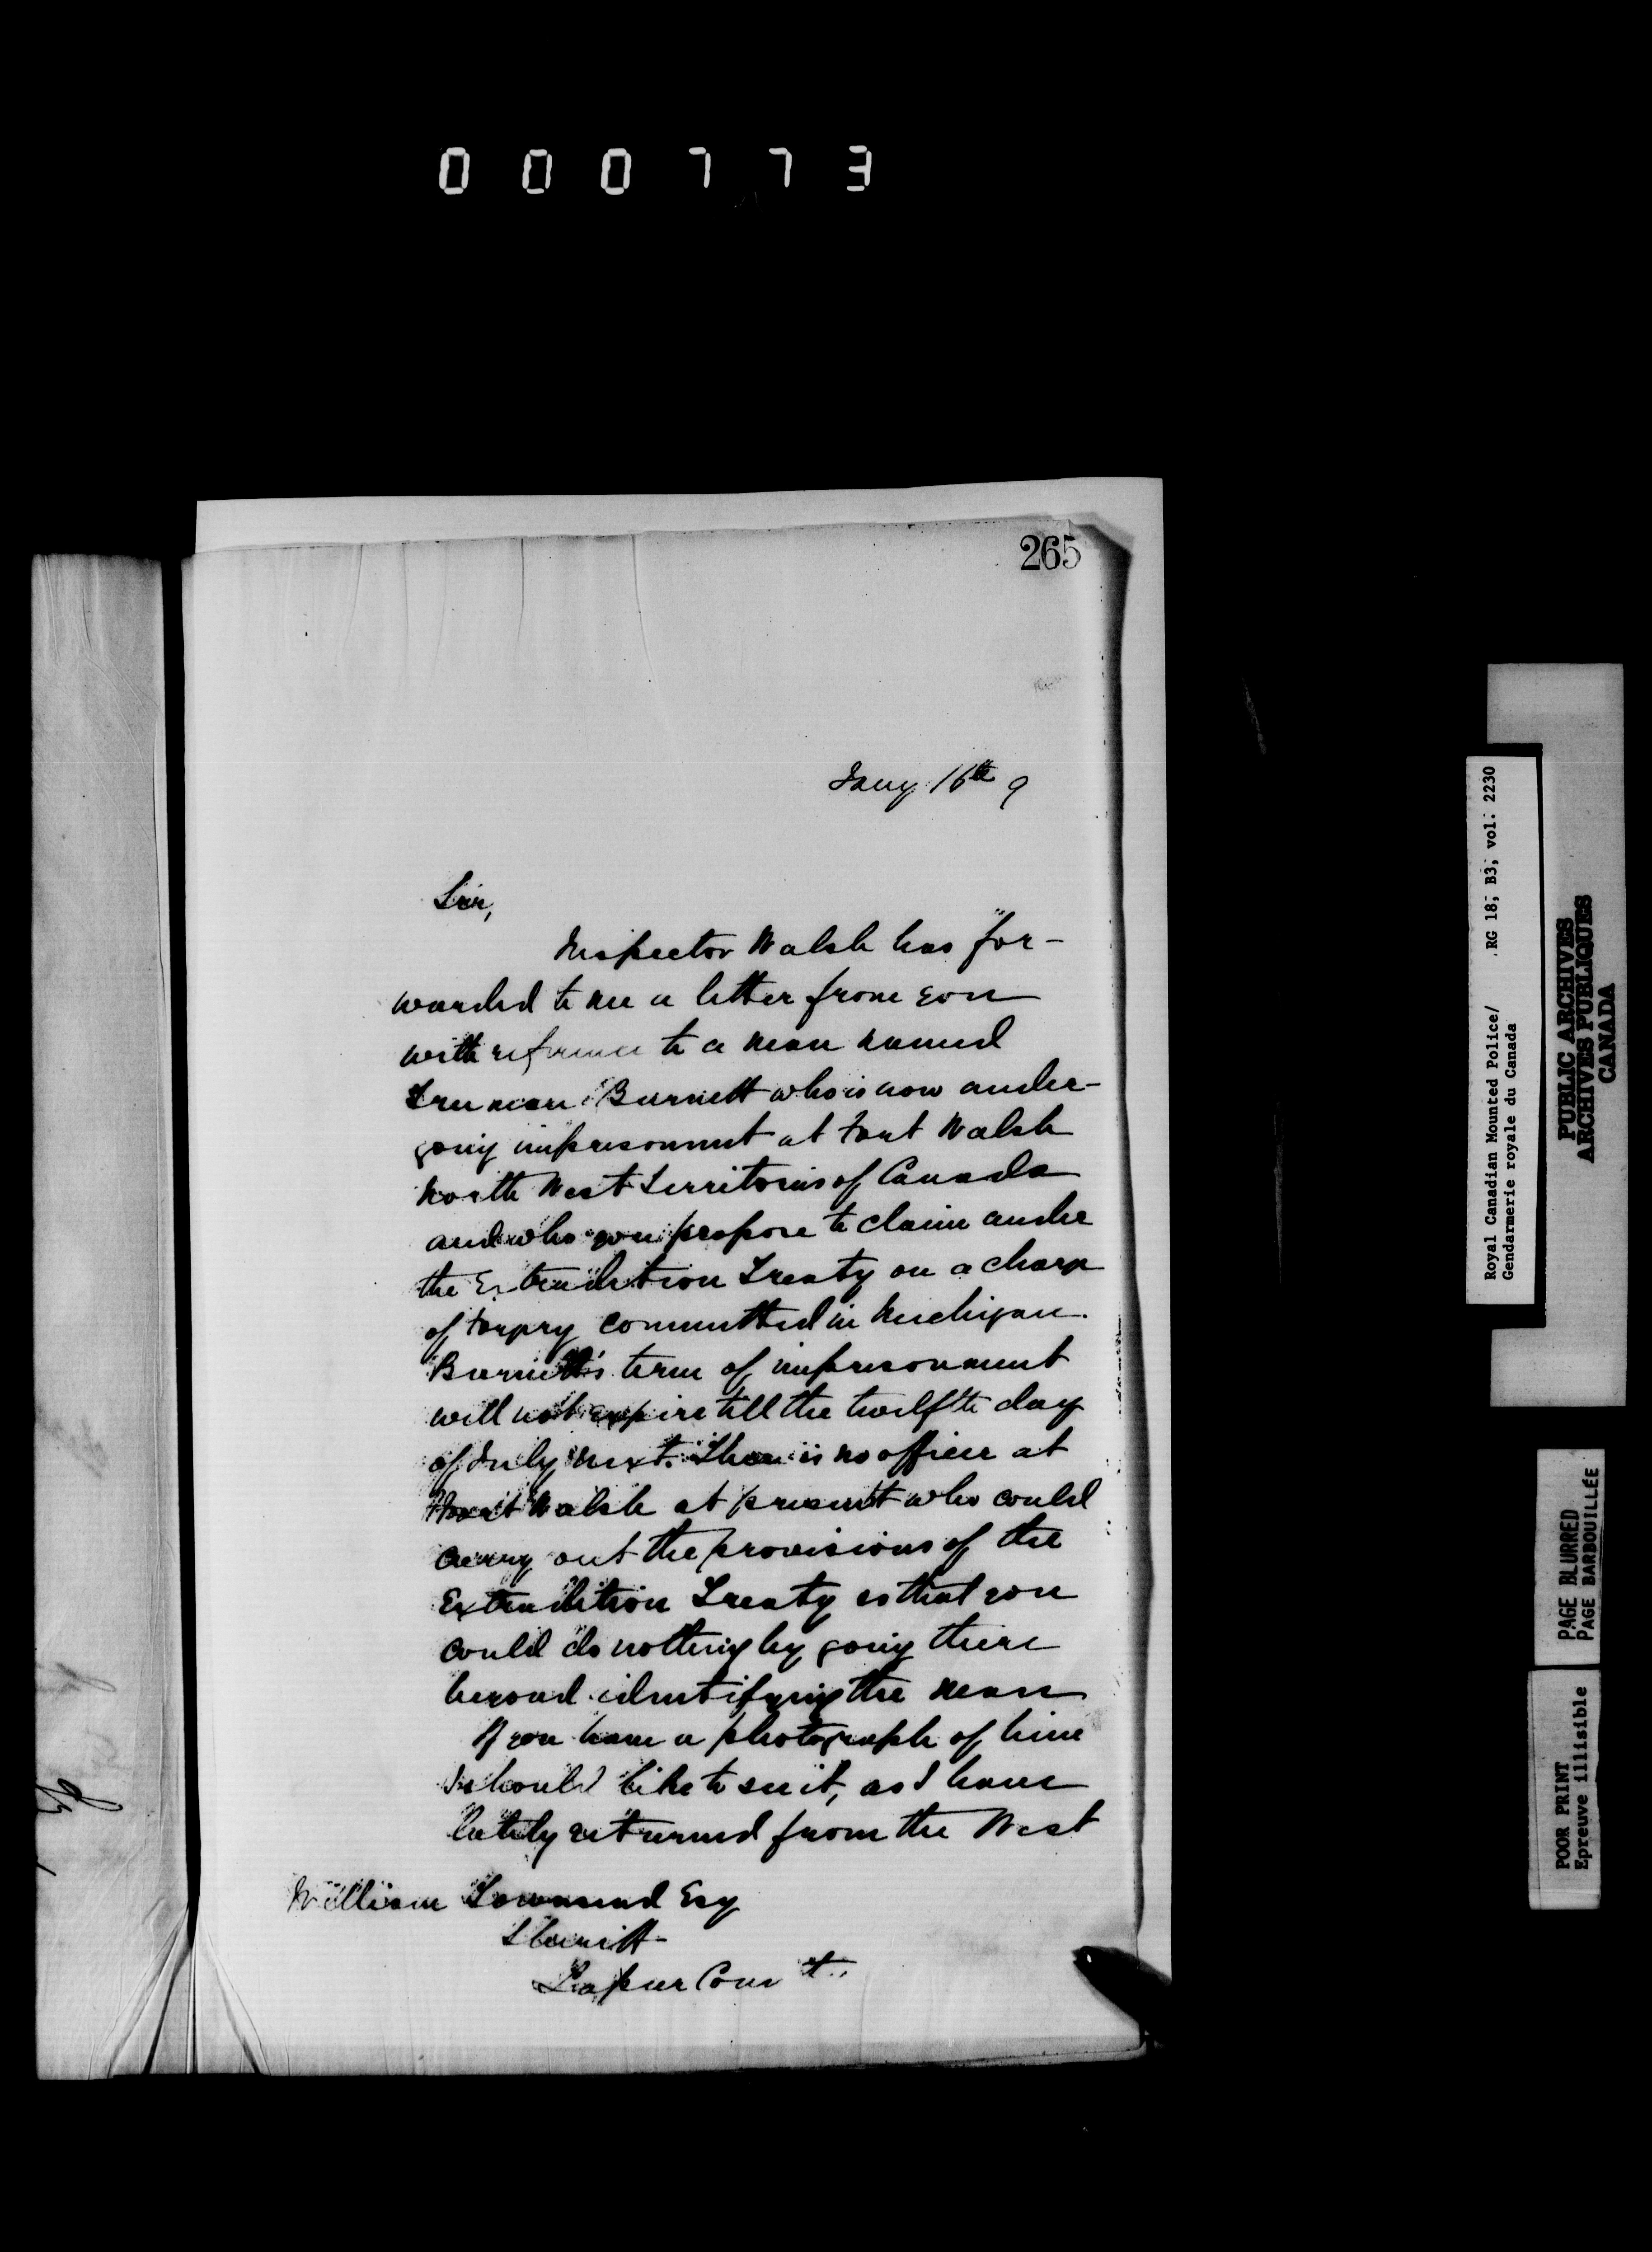 000773
265
Jany 16th 9
Sir,
Inspector Walsh has for-
warded to me a letter from you
with reference to a man named
Truman Burnett who is now under-
going imprisonment at Fort Walsh
North West Territories of Canada
and who you propose to claim under
the Extradition Treaty on a charge
of Forgery committed in Michigan.
Burnett's term of imprisonment
will not expire till the twelfth day
of July next. There is no officer at
Fort Walsh at present who could
carry out the provisions of the
Extradition Treaty so that you
could do nothing by going there
beyond identifying the man
If you have a photograph of him
I should like to see it, as I have
lately returned from the West
William Townsend Esq
Sheriff
Lapeer
Royal Canadian Mounted Police/ RG 18; B3; vol: 2230
Gendarmerie royale du Canada
PUBLIC ARCHIVES
ARCHIVES PUBLIQUES
CANADA
PAGE BLURRED
PAGE BARBOUILLÉE
POOR PRINT
Epreuve illisible